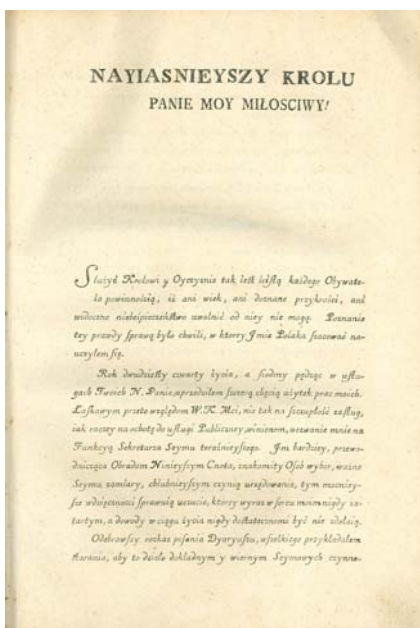 NAYIASNIEYSZY KROLU
PANIE MOY MIŁOSCIWY!
Służyć Krolowi y Oyczyznie tak iest ścisłą każdego Obywate-
la powinnością, iż ani wiek, ani doznane przykrości, ani
widoczne niebezpieczeństwo uwolnić od niey nie mogą. Poznanie
tey prawdy sprawą było chwili, w ktorey Jmie Polaka szacować na-
uczyłem się.
Rok dwudziesty czwarty życia, a siodmy pędząc w usłu-
gach Twoich N. Panie, uprzedziłem szczerą chęcią użytek prac moich.
Łaskawym przeto względom W. K. Mci, nie tak na szczupłość zasług,
iak raczey na ochotę do usługi Publiczney, winienem, wezwanie mnie na
Funkcyą Sekretarza Seymu teraźnieyszego. Im bardziey, przewo-
dnicząca Obradom Ninieyszym Cnota, znakomity Osob wybor, ważne
Seymu zamiary, chlubnieyszym czynią urzędowanie, tym mocniey-
sze wdzięczności sprawuią uczucie, ktorey wyraz w sercu moim nigdy za-
tartym, a dowody w ciągu życia nigdy dostatecznemi być nie zdołaią.
Odebrawszy rozkaz pisania Dyaryuszu, wszelkiego przykładałem
starania, aby to dzieło dokładnym y wiernym Seymowych czynno-